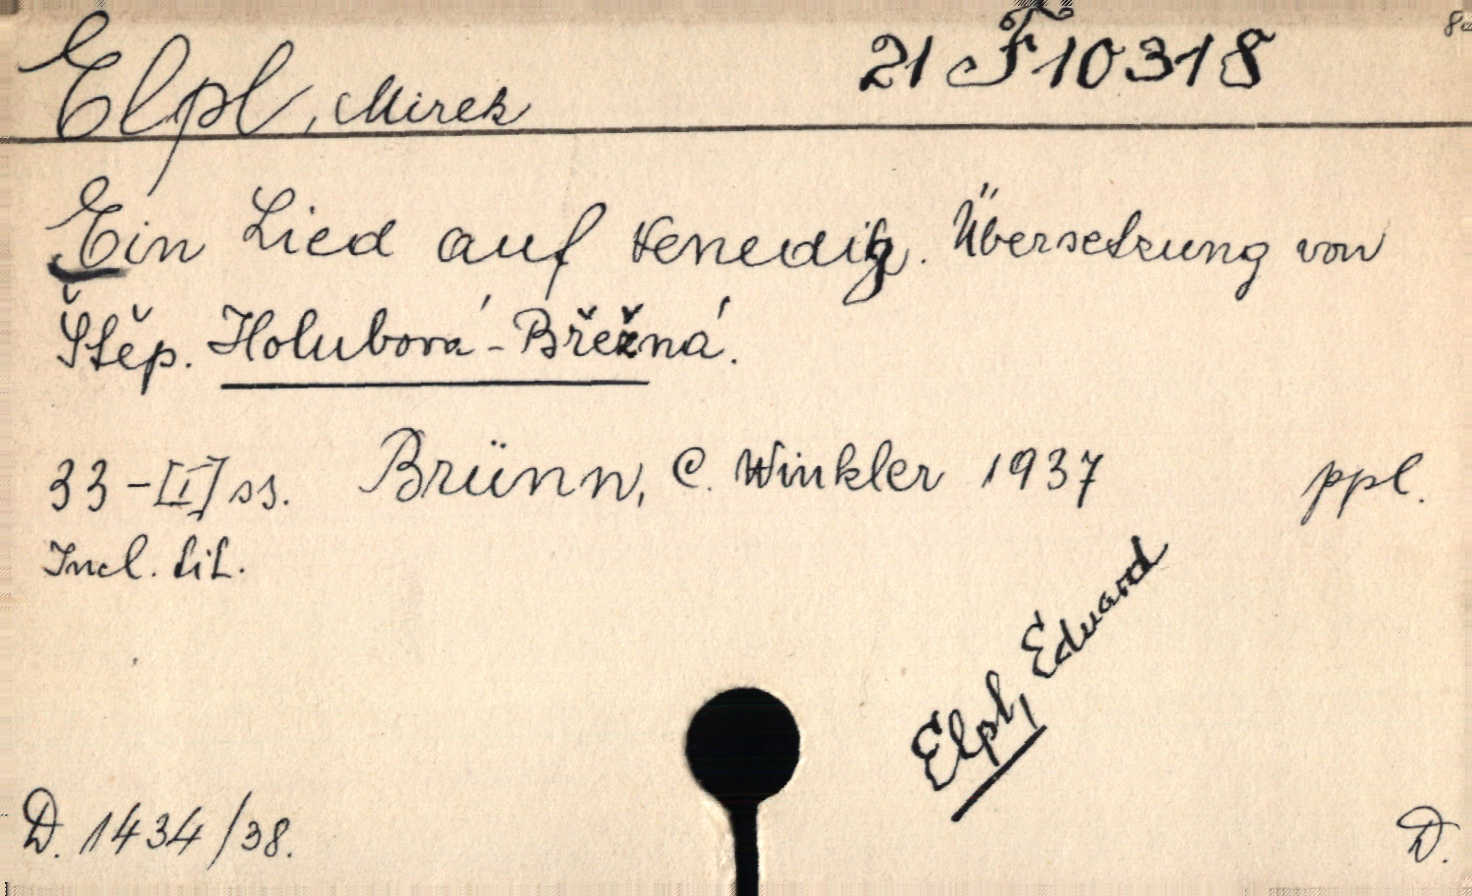 Elpl, Mirek
21 F 10318
Ein Lied auf Venedig. Übersetzung von
Štěp. Holubová-Břežná.
33-[I] ss. Brünn, C. Winkler 1937 ppl.
Incl. tit.
Elpl, Eduard
D. 1434/38.
D.